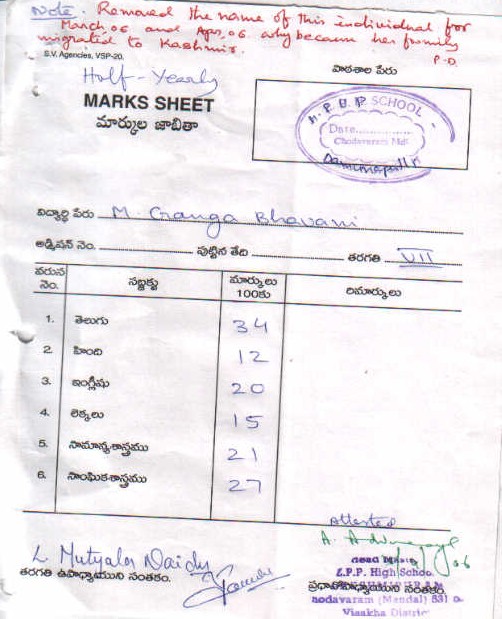 Note. Removed the name of this individual for
March, 06 and Apr, 06. why because her family
migrated to Kashmir.
P.D.
S.V. Agencies, VSP-20.
Half-Yearly
MARKS SHEET
మార్కుల జాబితా
పాఠశాల పేరు
SCHOOL
Date
Chodavaram Mdl.
విద్యార్థి పేరు M. Ganga Bhavani
అడ్మిషన్ నెం. పుట్టిన తేది తరగతి VII
వరుస నెం. సబ్జక్టు మార్కులు 100కు రిమార్కులు
1. తెలుగు 34
2. హింది 12
3. ఇంగ్లీషు 20
4. లెక్కలు 15
5. సామాన్యశాస్త్రము 21
6. సాంఘికశాస్త్రము 27
Attested
L. Mutyala Naidu
తరగతి ఉపాధ్యాయుని సంతకం.
Head Master
Z.P.P. High School
ప్రధానోపాధ్యాయుని సంతకం.
hodavaram (Mandal) 531 0
Visakha District